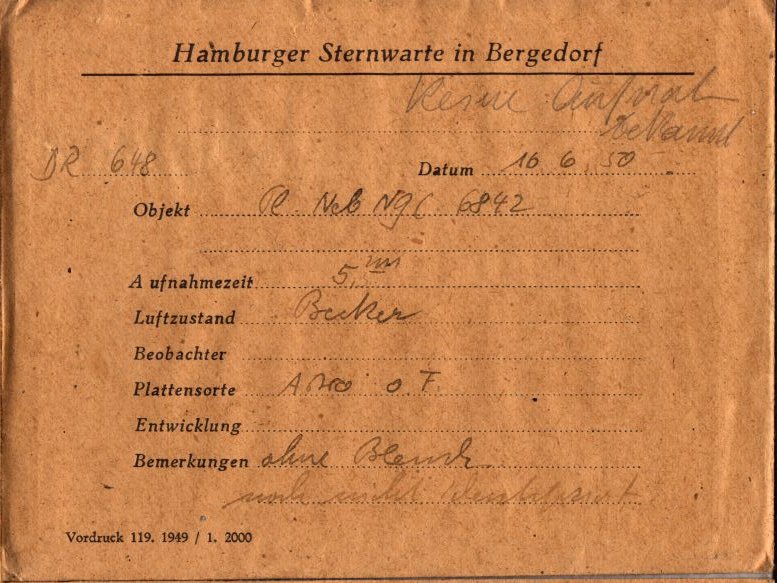 Hamburger Sternwarte in Bergedorf
Keine
DR 648 Datum 16 6. 50
Objekt Pl. Neb NGC 6842
Aufnahmezeit 5 m
Luftzustand Becker
Beobachter
Plattensorte Astro o. F.
Entwicklung
Bemerkungen ohne Blende
noch nicht
Vordruck 119. 1949 / 1. 2000